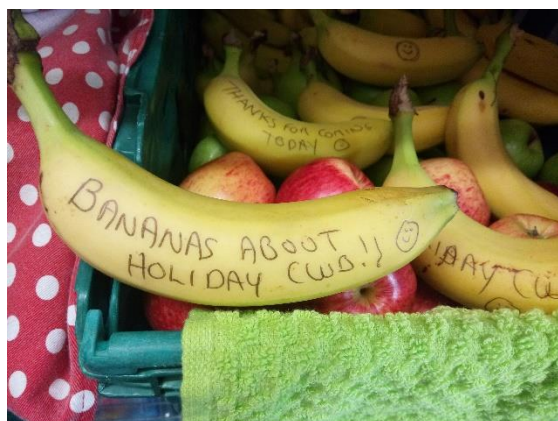 THANKS FOR COMING
TODAY
BANANAS ABOUT
HOLIDAY CLUB!!